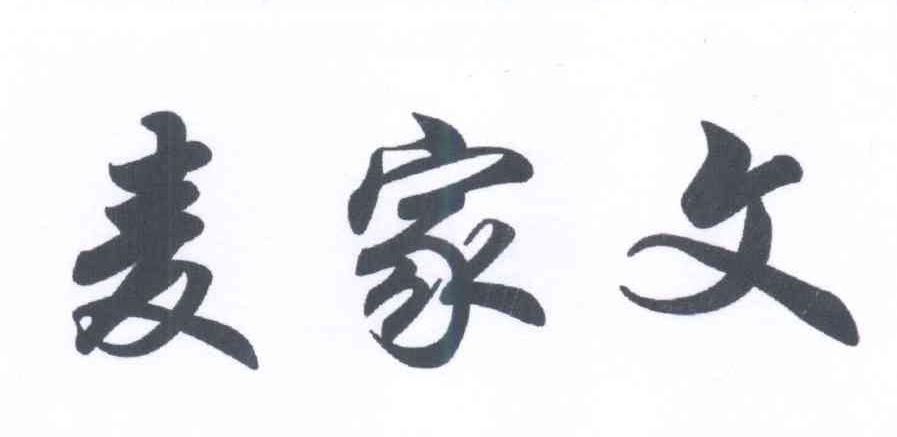 麦家文